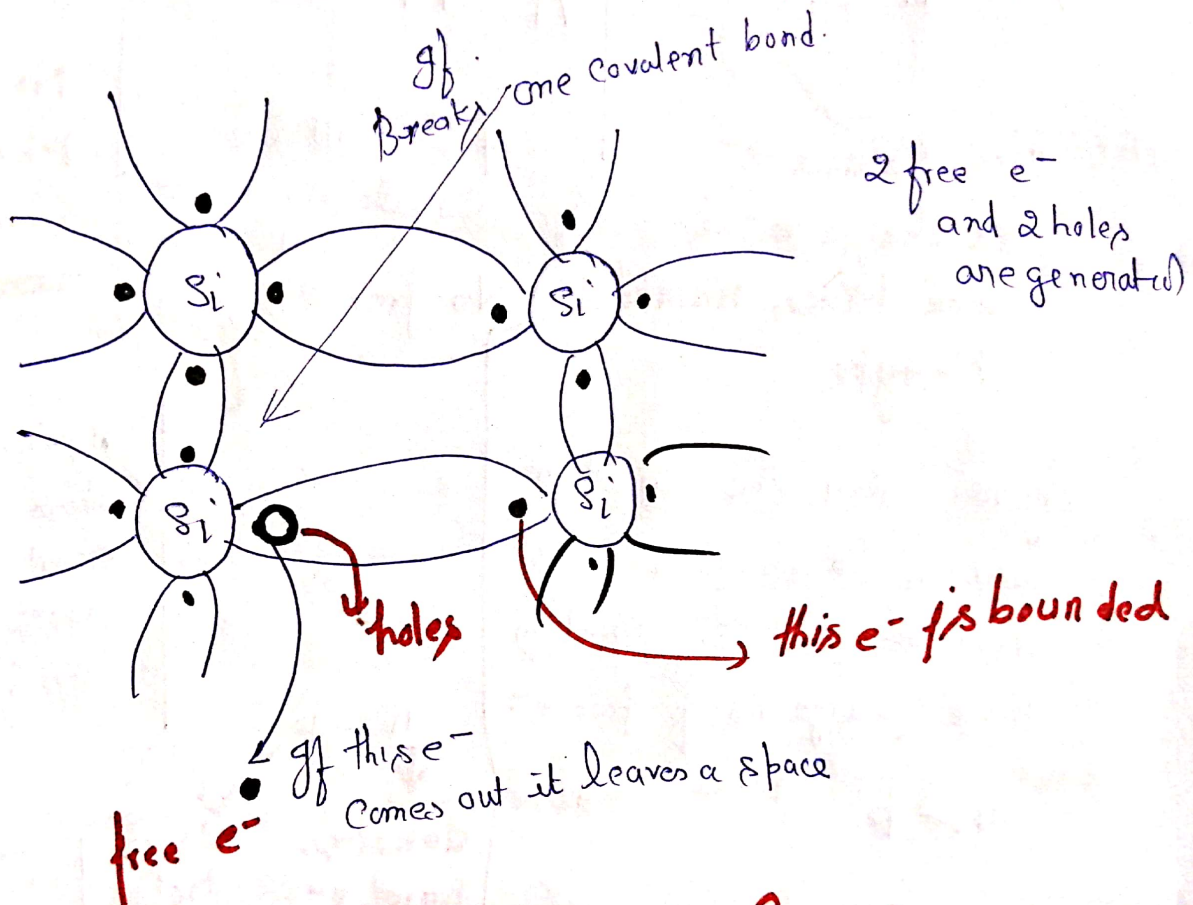 If
Breaks one Covalent bond.
2 free e-
and 2 holes
are generated
Si
Si
Si
Si
holes
this e- is bounded
If this e-
Comes out it leaves a space
free e-